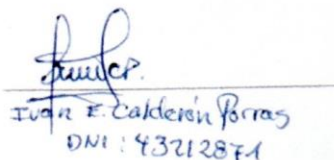 Ivan E. Calderón Porras
DNI: 43212871